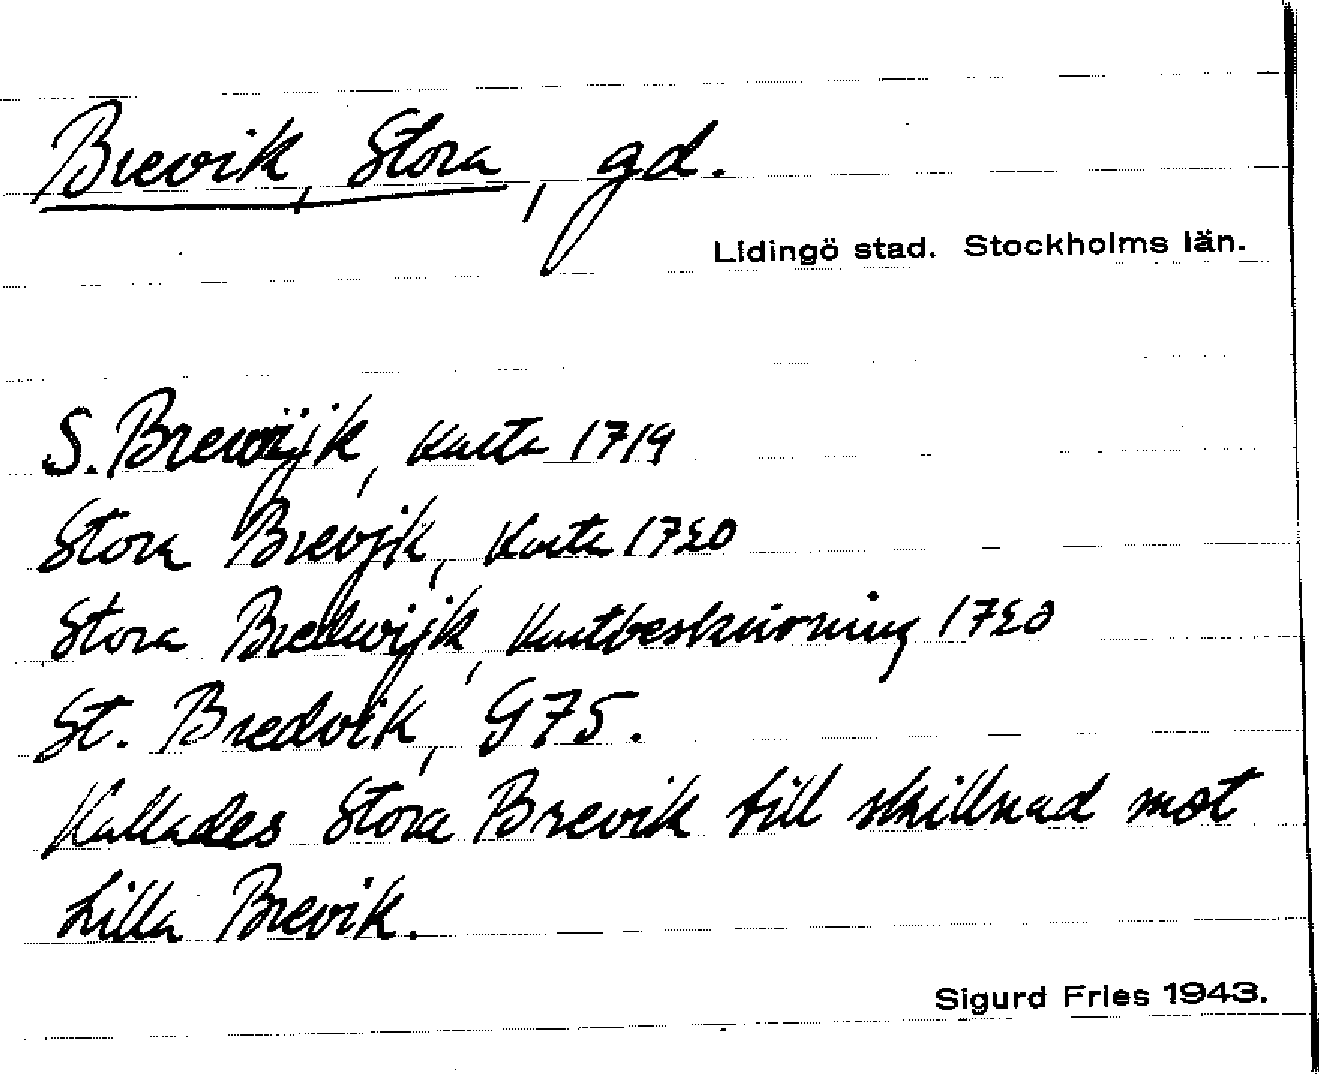 Brevik, Stora, gd.
Lidingö stad. Stockholms län.
S. Brewijk, Karta 1719
Stora Brevjk, Karta 1720
Stora Bredwijk, Kartbeskrivning 1720
St. Bredvik, G75.
Kallades Stora Brevik till skillnad mot
Lilla Brevik.
Sigurd Fries 1943.